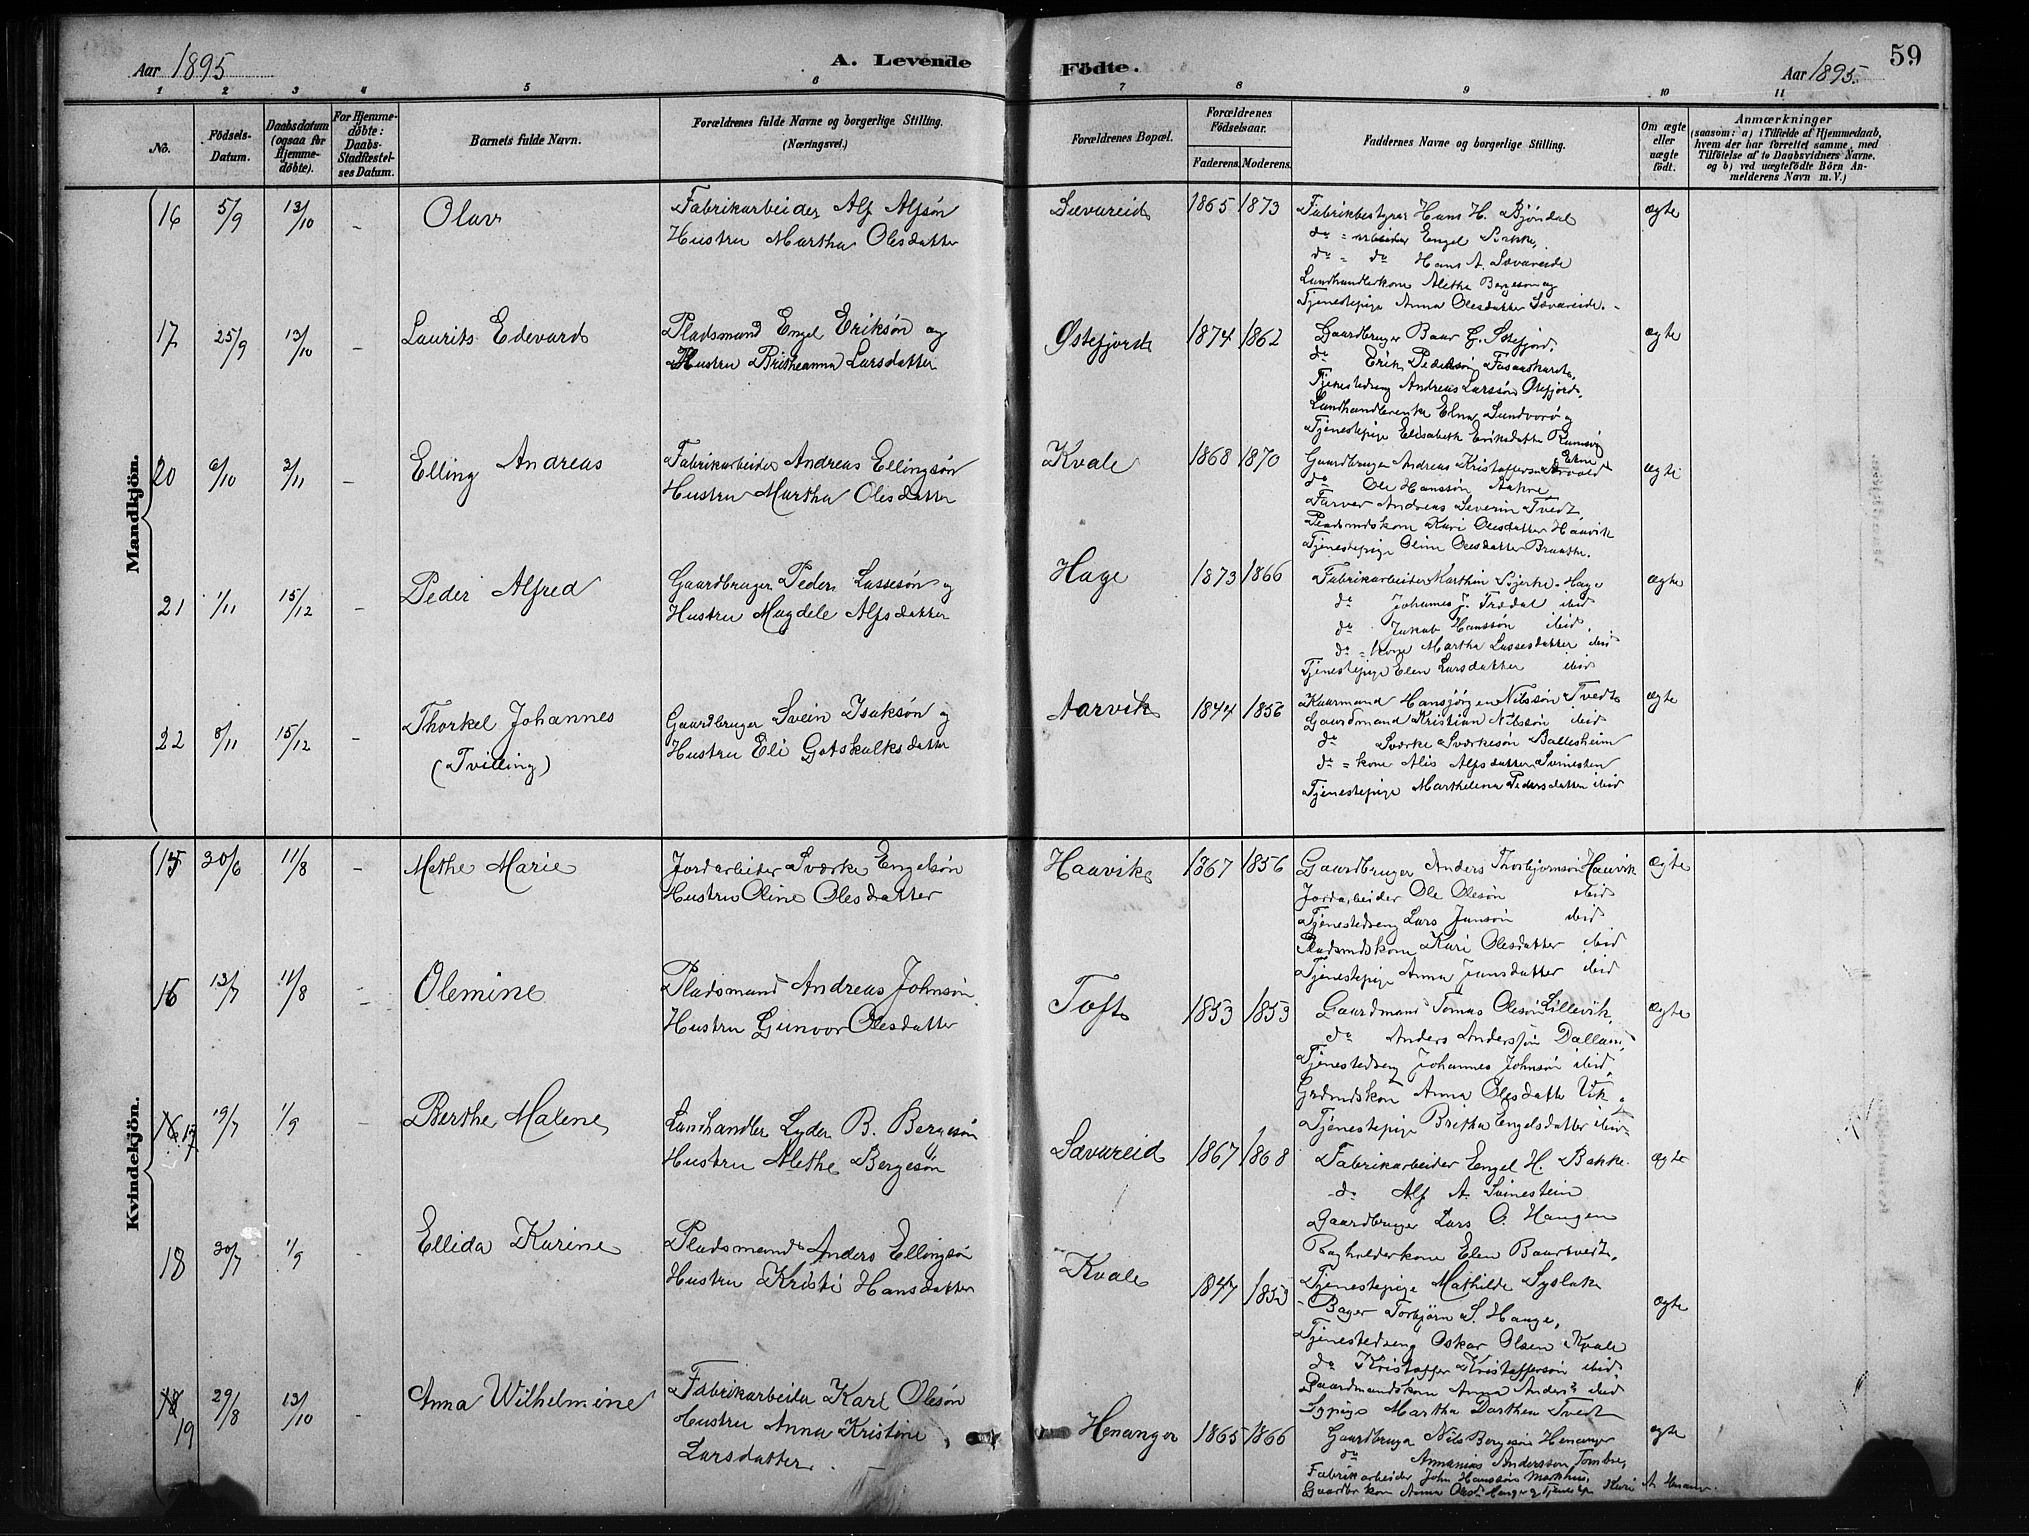 Aar 1895
A. Levende
Födte.
Aar 1895.
59
1 2 3 4 5 6 7 8 9 10 11
No.
Födsels-
Datum.
Daabsdatum
(ogsaa för
Hjemme-
döbte).
For Hjemme-
döbte:
Daabs-
Stadfæstel-
ses Datum.
Barnets fulde Navn.
Forældrenes fulde Navne og borgerlige Stilling.
(Næringsvei.)
Forældrenes Bopæl.
Forældrenes
Födselsaar.
Faderens. Moderens.
Faddernes Navne og borgerlige Stilling.
Om ægte
eller
uægte
födt.
Anmærkninger
(saasom: a) i Tilfælde af Hjemmedaab,
hvem der har forrettet samme, med
Tilföielse af to Daabsvidners Navne.
og b) ved uægtefödte Börn An-
melderens Navn m. V.)
Mandkjön.
16 5/9 13/10 - Olav
Fabrikarbeider Alf Alfsön
Hustru Martha Olesdatter
Sævareid 1865 1873
Fabrikbestyrer Hans H. Bjöndal
do = arbeider Engel Bakke,
do = do Hans A. Sævareide
Landhandlerkone Alethe Bergeson og
Tjenestepige Anna Olesdatter Sævareide. -
ægte
17 25/9 13/10 - Laurits Edevard
Pladsmand Engel Eriksön og
Hustru Britheanna Larsdatter
Østefjord 1874 1862
Gaardbruger Baar G. Østefjord,
do Erik Pedersön
Tjenestedreng Andreas Larssön Østefjord,
Elisabeth Eriksdatter
ægte
20 6/10 3/11 - Elling Andreas
Fabrikarbeider Andreas Ellingsön
Hustru Martha Olesdatter
Kvale 1868 1870
Gaardbruger Andreas Kristoffersen
do Ole Hanssön Aakre
Farver Andreas Severin Tvedt
Pladsmdskone Kari Olesdatter Haavik
Tjenestepige Oline Olesdatter
ægte
21 1/11 15/12 - Peder Alfred
Gaardbruger Peder Lassesön og
Hustru Magdele Alfsdatter
Hage 1873 1866
Fabrikarbeider Bjerke Hage
do Johannes J. Trædal ibid
do Jakob Hanssön ibid
do = kone Martha Lassesdatter ibid
Tjenestepige Elen Larsdatter ibid
ægte
22 8/11 15/12 - Thorkel Johannes
(Tvilling)
Gaardbruger Svein Isaksön og
Hustru Eli Gotskalksdatter
Aarvik 1844 1856
Kaarmand Hansjörgen Nilssön Tvedt
Gaardmand Kristian Nilssön ibid
do Sværke Sværkesön Ballesheim
do = kone Alis Alfsdatter Svinesten
Tjenestepige Marthelena Pedersdatter ibid
ægte
Kvindekjön.
15 30/6 11/8 - Methe Marie
Jordarbeider Sværke Engelsön
Hustru Oline Olesdatter
Haavik 1867 1856
Gaardbruger Anders Thorbjørnsön Haavik
Jordarbeider Ole Olesön ibid
Tjenestedreng Lars Jansön ibid
Pladsmdskone Kari Olesdatter ibid
Tjenestepige Anna Jansdatter ibid
ægte
16 13/7 11/8 - Olemine
Pladsmand Andreas Johnsön
Hustru Gunvor Olesdatter
Toft 1853 1853
Gaardmand Tomas Olesön Lillevik,
do Anders Anderssön
Tjenestedreng Johannes Johnsön ibid,
Grdmdskone Anna Olesdatter Vik
Tjenestepige Britha Engelsdatter ibid
ægte
17 19/7 1/9 - Berthe Malene
Landhandler Lyder B. Bergesön
Hustru Alethe Bergesön
Sævareid 1867 1868
Fabrikarbeider Engel H. Bakke
do Alf A. Svinestein
Gaardbruger Lars O. Haugen
Bogholderkone Elen Baartvedt,
Tjenestepige Mathilde
ægte
18 30/7 1/9 - Ellida Karine
Pladsmand Anders Ellingsön
Hustru Kristi Hansdatter
Kvale 1847 1853
Bager Torbjörn S. Hauge,
Tjenestedreng Oskar Olsen Kvale
do Kristoffer Kristoffersön ibid
Gaardmandskone Anna Andersd. ibid
Sypige Martha Dorthea Tvedt
ægte
19 29/8 13/10 - Anna Wilhelmine
Fabrikarbeider Karl Olesön
Hustru Anna Kristine
Larsdatter.
Henanger 1865 1866
Gaardbruger Nils Bergesön Henanger
do Annanias Anderssön
Fabrikarbeider John Hanssön Markhus,
ægte